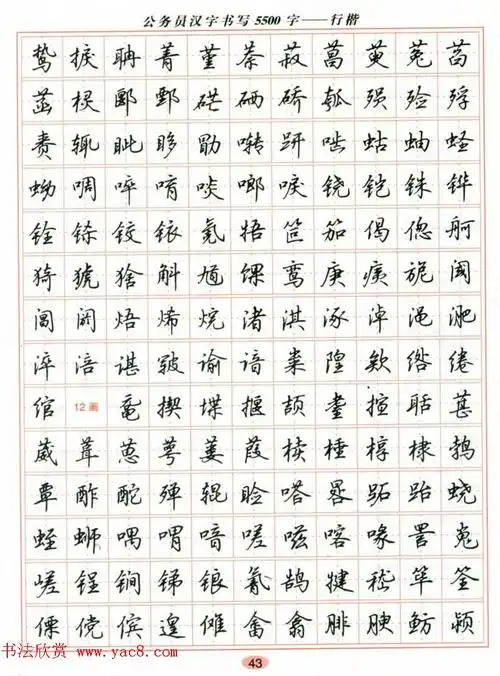 公务员汉字书写5500字——行楷
鸷 捩 聃 菁 堇 萘 菽 菖 萸 菟 萏
菡 棂 郾 鄄 硭 硒 硚 瓠 殒 殓 殍
赉 辄 眦 眵 勖 啭 趼 啮 蛄 蚰 蛏
蚴 啁 啐 唷 啖 啷 唳 铙 铠 铢 铧
铨 铩 铰 铱 氪 牾 笸 笳 偈 偬 舸
猗 猞 斛 馗 馃 鸾 庾 痍 旎 阈
阊 阏 焐 烯 烷 渚 淇 涿 淖 渑 淝
淬 涪 谌 皲 谕 谙 粜 隍 欸 绺 绻
绾 12画 鼋 揳 堞 揠 颉 耋 揎 聒 葚
葳 葺 葸 萼 蒌 葭 椟 棰 椁 棣 鹁
覃 酢 酡 殚 辊 睑 嗒 晷 跖 跆 蛲
蛭 蛳 喁 喟 喑 嗟 嗞 喀 喙 詈 嵬
嵯 锃 锏 锑 锒 氰 鹄 犍 嵇 筚 筌
傈 傥 傧 遑 傩 畲 翕 腓 腴 鲂 颍
书法欣赏 www.yac8.com
43